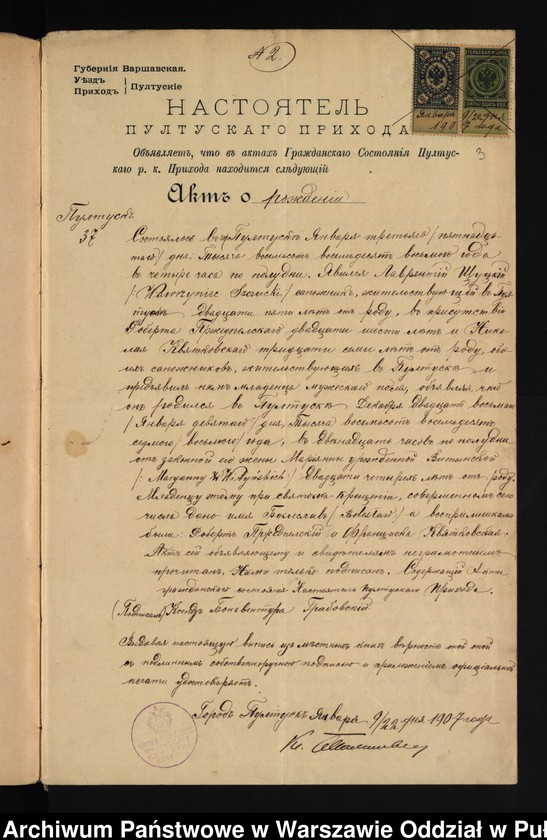 № 2.
Губернія Варшавская.
Уѣздъ
Приходъ } Пултускіе
НАСТОЯТЕЛЬ
ПУЛТУСКАГО ПРИХОДА
Января 9/22 дня
190 7 года
3
Объявляетъ, что въ актахъ Гражданскаго Состоянія Пултус-
каго р. к. Прихода находится слѣдующій
Актъ о рожденіи
Пултускъ
37
Состоялось въ г. Пултускѣ Января третьяго / пятнадца-
таго / дня, тысяча восемьсотъ восемьдесятъ восьмаго года
въ четыре часа по полудни. Явился Лаврентій Щуцкій
/ Wawrzyniec / сапожникъ, жительствующій въ Пул-
тускѣ двадцати пяти лѣтъ отъ роду, въ присутствіи
Роберта двадцати шести лѣтъ и Нико-
лая Квятковскаго тридцати семи лѣтъ отъ роду, обо-
ихъ сапожниковъ, жительствующихъ въ Пултускѣ и
предъявилъ намъ младенца мужескаго пола, объявляя, что
онъ родился въ Пултускѣ Декабря двадцать восьмаго
/ Января девятаго / дня, тысяча восемьсотъ восемьдесятъ
седьмаго / восьмаго / года, въ двѣнадцать часовъ по полудни
отъ законной его жены Маріянны урожденной
/ Maryanny / двадцати четырехъ лѣтъ отъ роду.
Младенцу этому при святомъ крещеніи, совершенномъ сего
числа дано имя Болеславъ / Bolesław / а воспріемниками
были: Робертъ и Францишка Квятковская.
Актъ сей объявляющему и свидѣтелямъ неграмотнымъ
прочитанъ, Нами только подписанъ. Содержащій Акты
гражданскаго состоянія Настоятель Пултускаго Прихода.
(Подписалъ) Ксендзъ Бонавентура Грабовскій
Выдавая настоящую выпись изъ мѣстныхъ книгъ вѣрность той оной
съ подлинникомъ собственноручною подписью и приложеніемъ оффиціальной
печати удостовѣряетъ.
Городъ Пултускъ Января 9/22 дня 1907 года
Кс.
Archiwum Państwowe w Warszawie Oddział w Puł